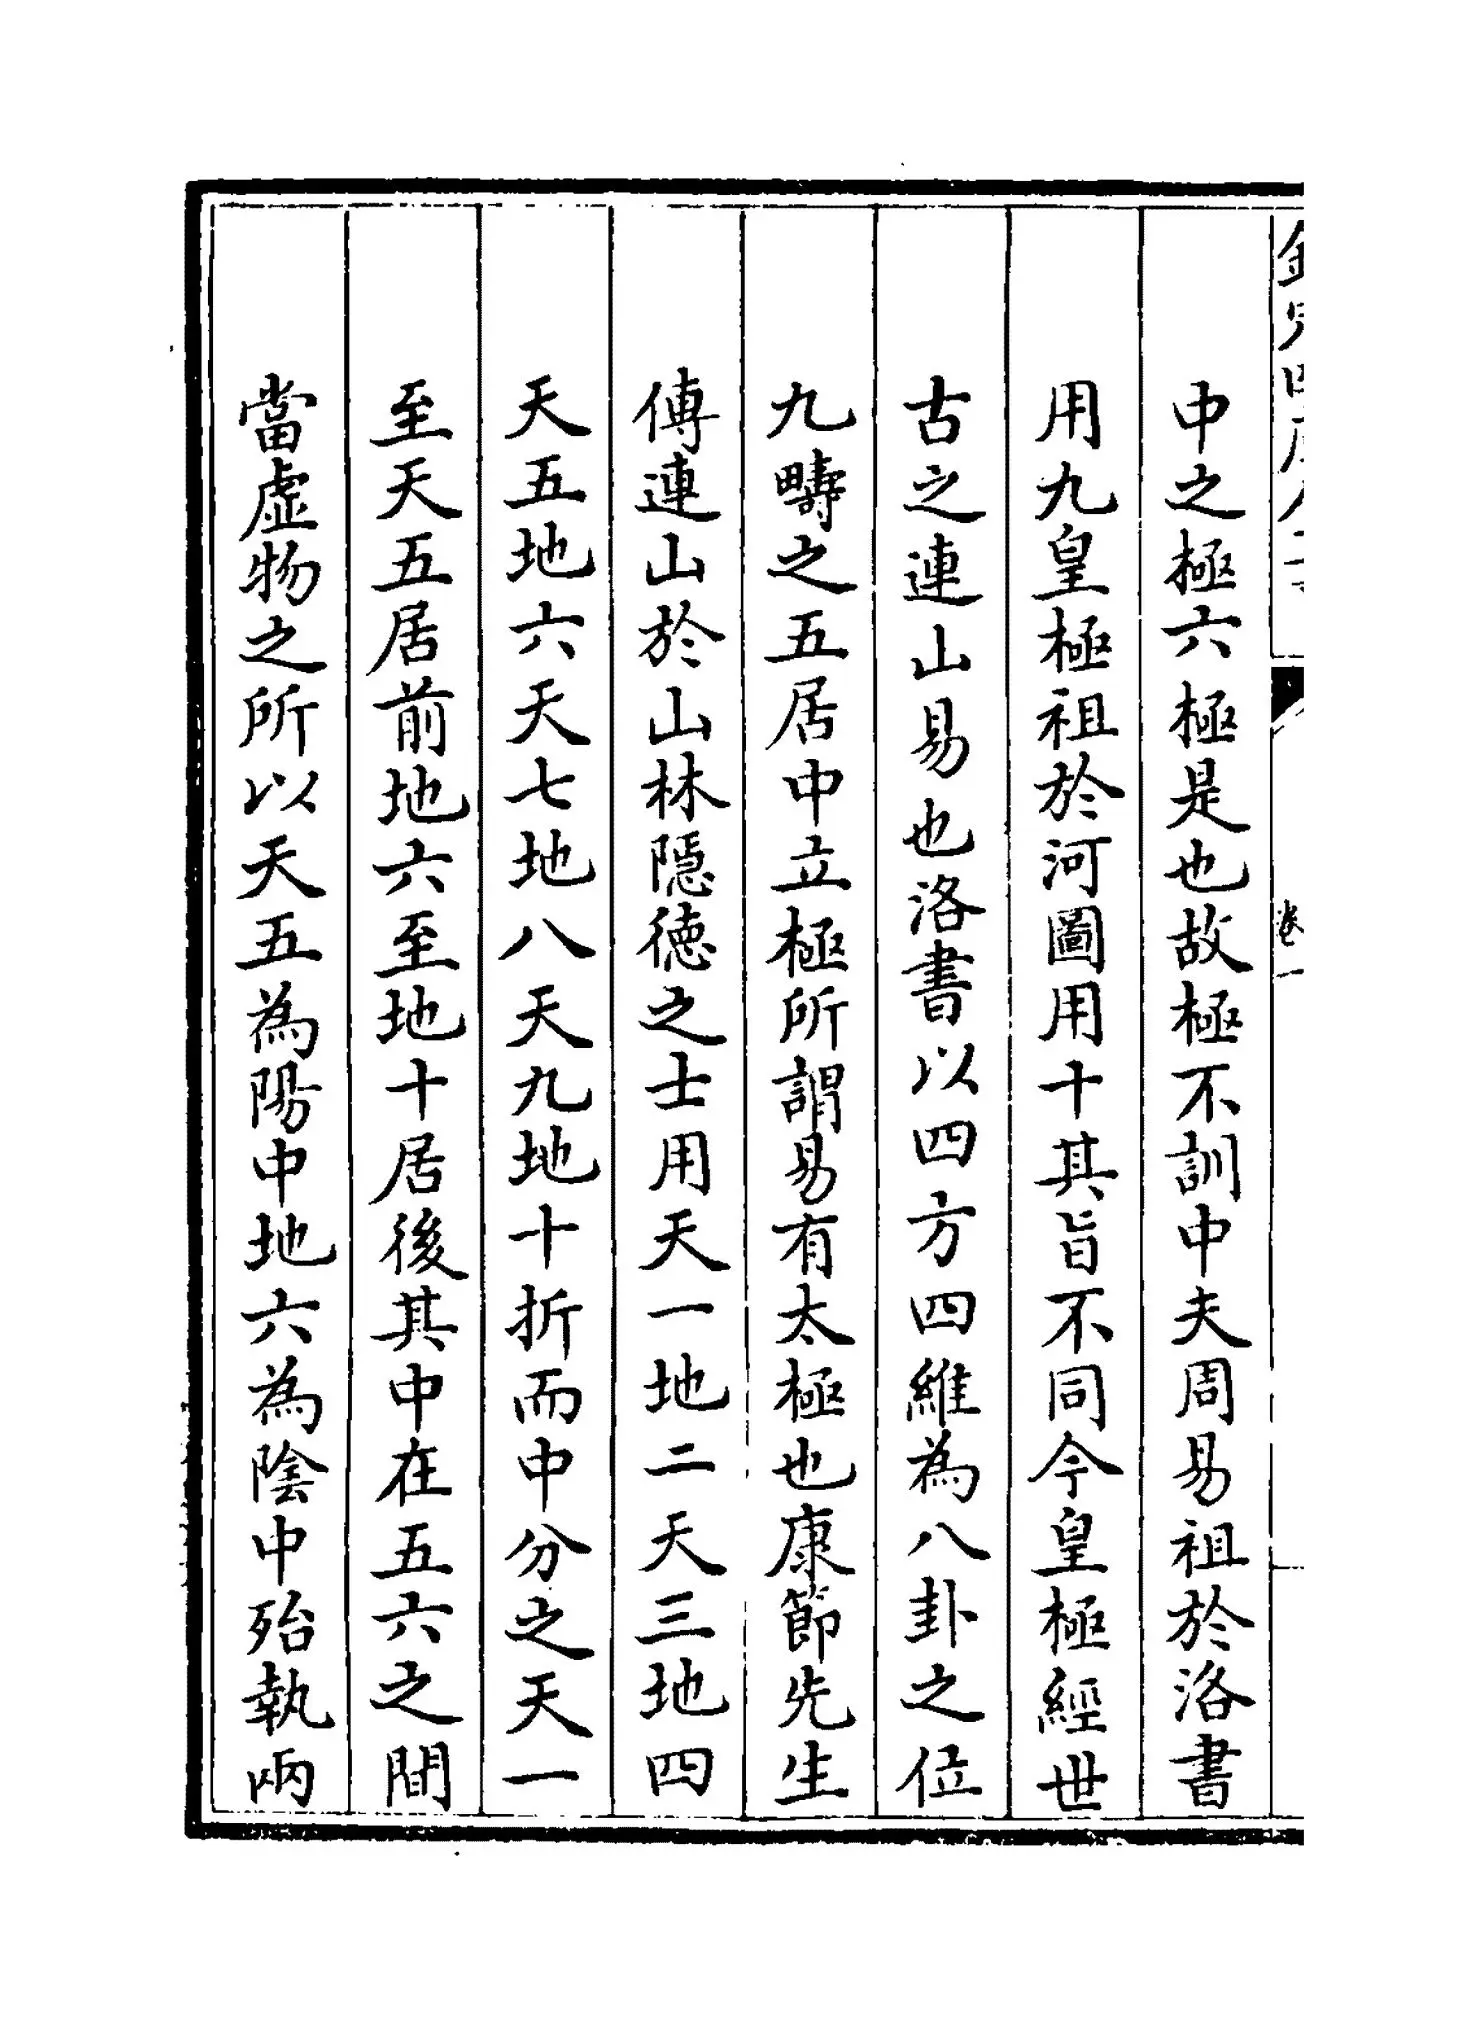 中之極六極是也故極不訓中夫周易祖於洛書
用九皇極祖於河圖用十其旨不同今皇極經世
古之連山易也洛書以四方四維為八卦之位
九疇之五居中立極所謂易有太極也康節先生
傳連山於山林隱德之士用天一地二天三地四
天五地六天七地八天九地十折而中分之天一
至天五居前地六至地十居後其中在五六之間
當虛物之所以天五為陽中地六為陰中殆執兩